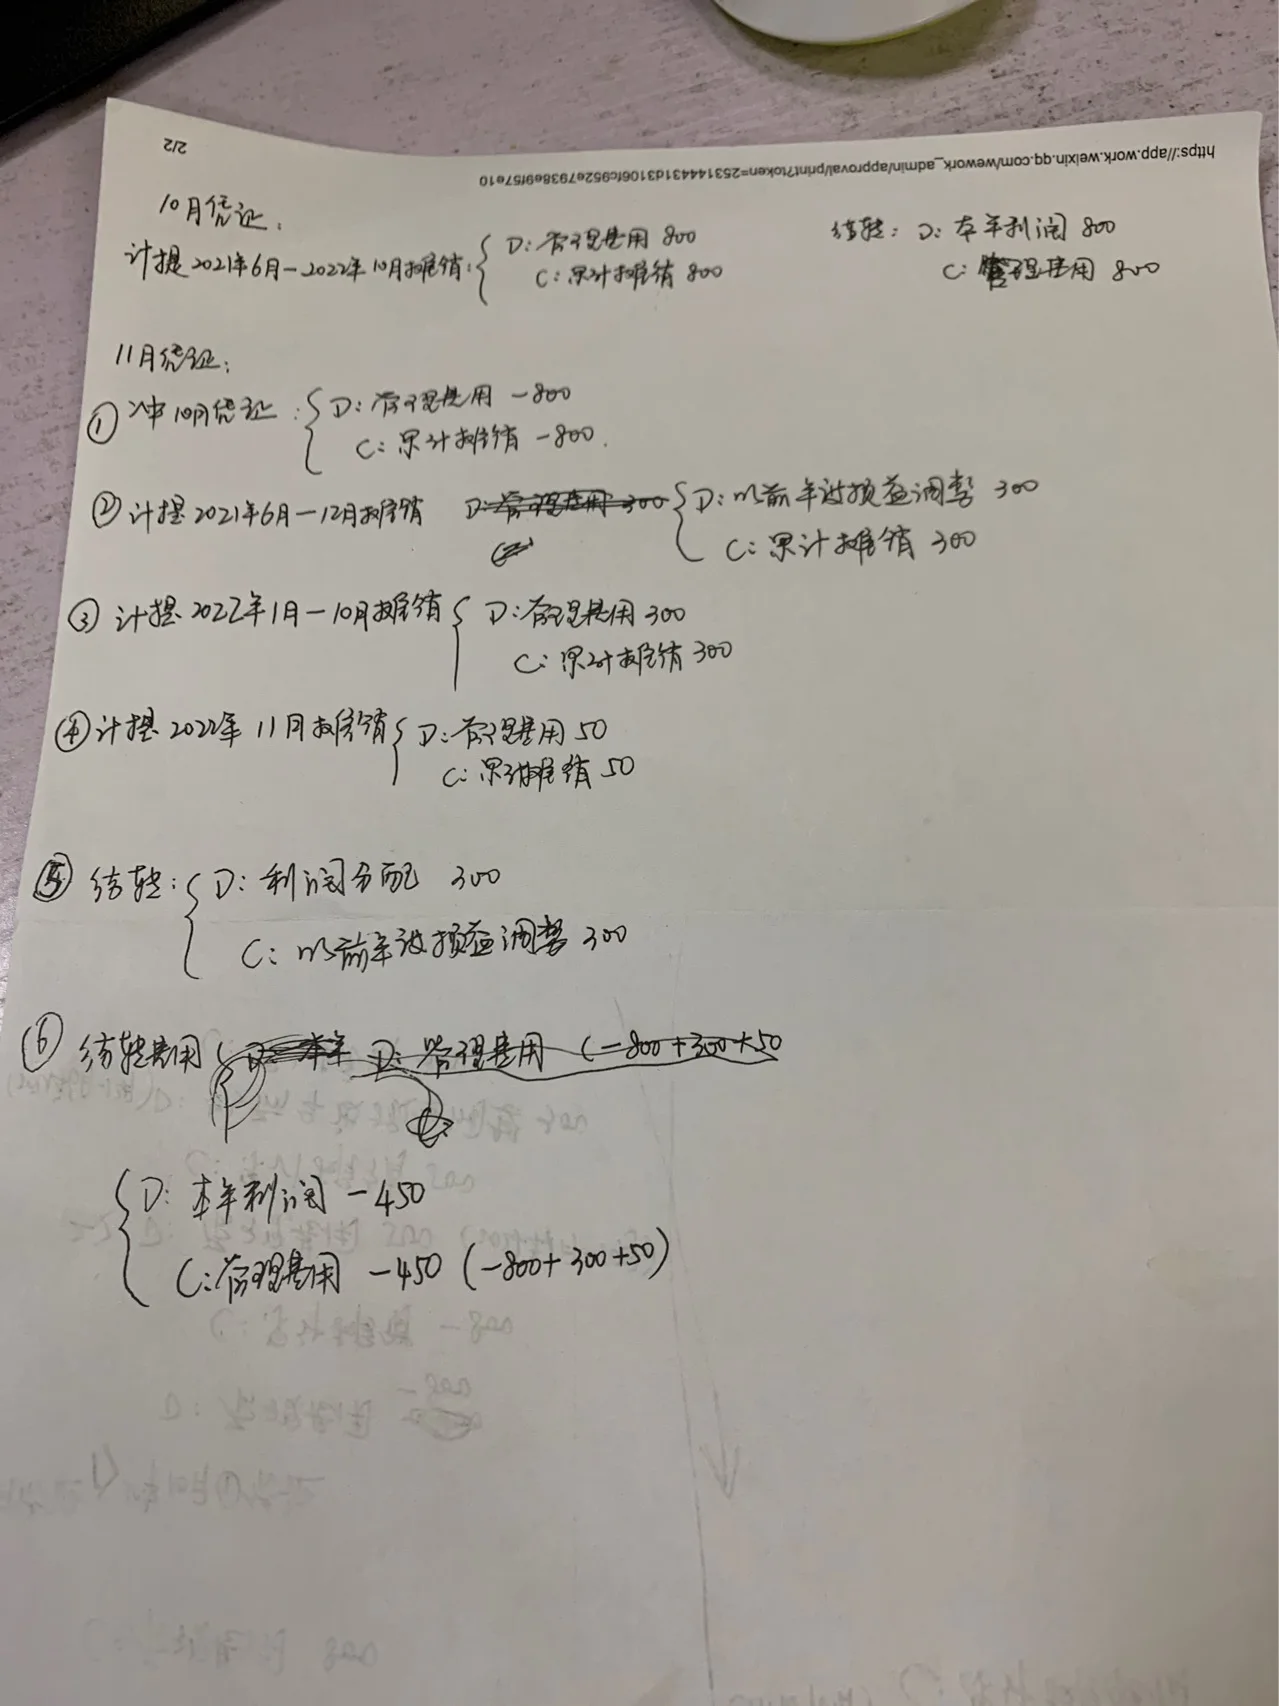 https://app.work.weixin.qq.com/wework_admin/approval/print?token=2531444431d3106fc952e7938e9f57e10
2/2
10月凭证:
计提2021年6月—2022年10月摊销: D: 管理费用 800
C: 累计摊销 800
结转: D: 本年利润 800
C: 管理费用 800
11月凭证:
① 冲10月凭证: D: 管理费用 -800
C: 累计摊销 -800.
② 计提2021年6月—12月摊销 D: 管理费用 300 D: 以前年度损益调整 300
C: 累计摊销 300
③ 计提2022年1月—10月摊销 D: 管理费用 300
C: 累计摊销 300
④ 计提2022年11月摊销 D: 管理费用 50
C: 累计摊销 50
⑤ 结转: D: 利润分配 300
C: 以前年度损益调整 300
⑥ 结转费用 D: 本年 D: 管理费用 (-800+300+50
D: 本年利润 -450
C: 管理费用 -450 (-800+300+50)